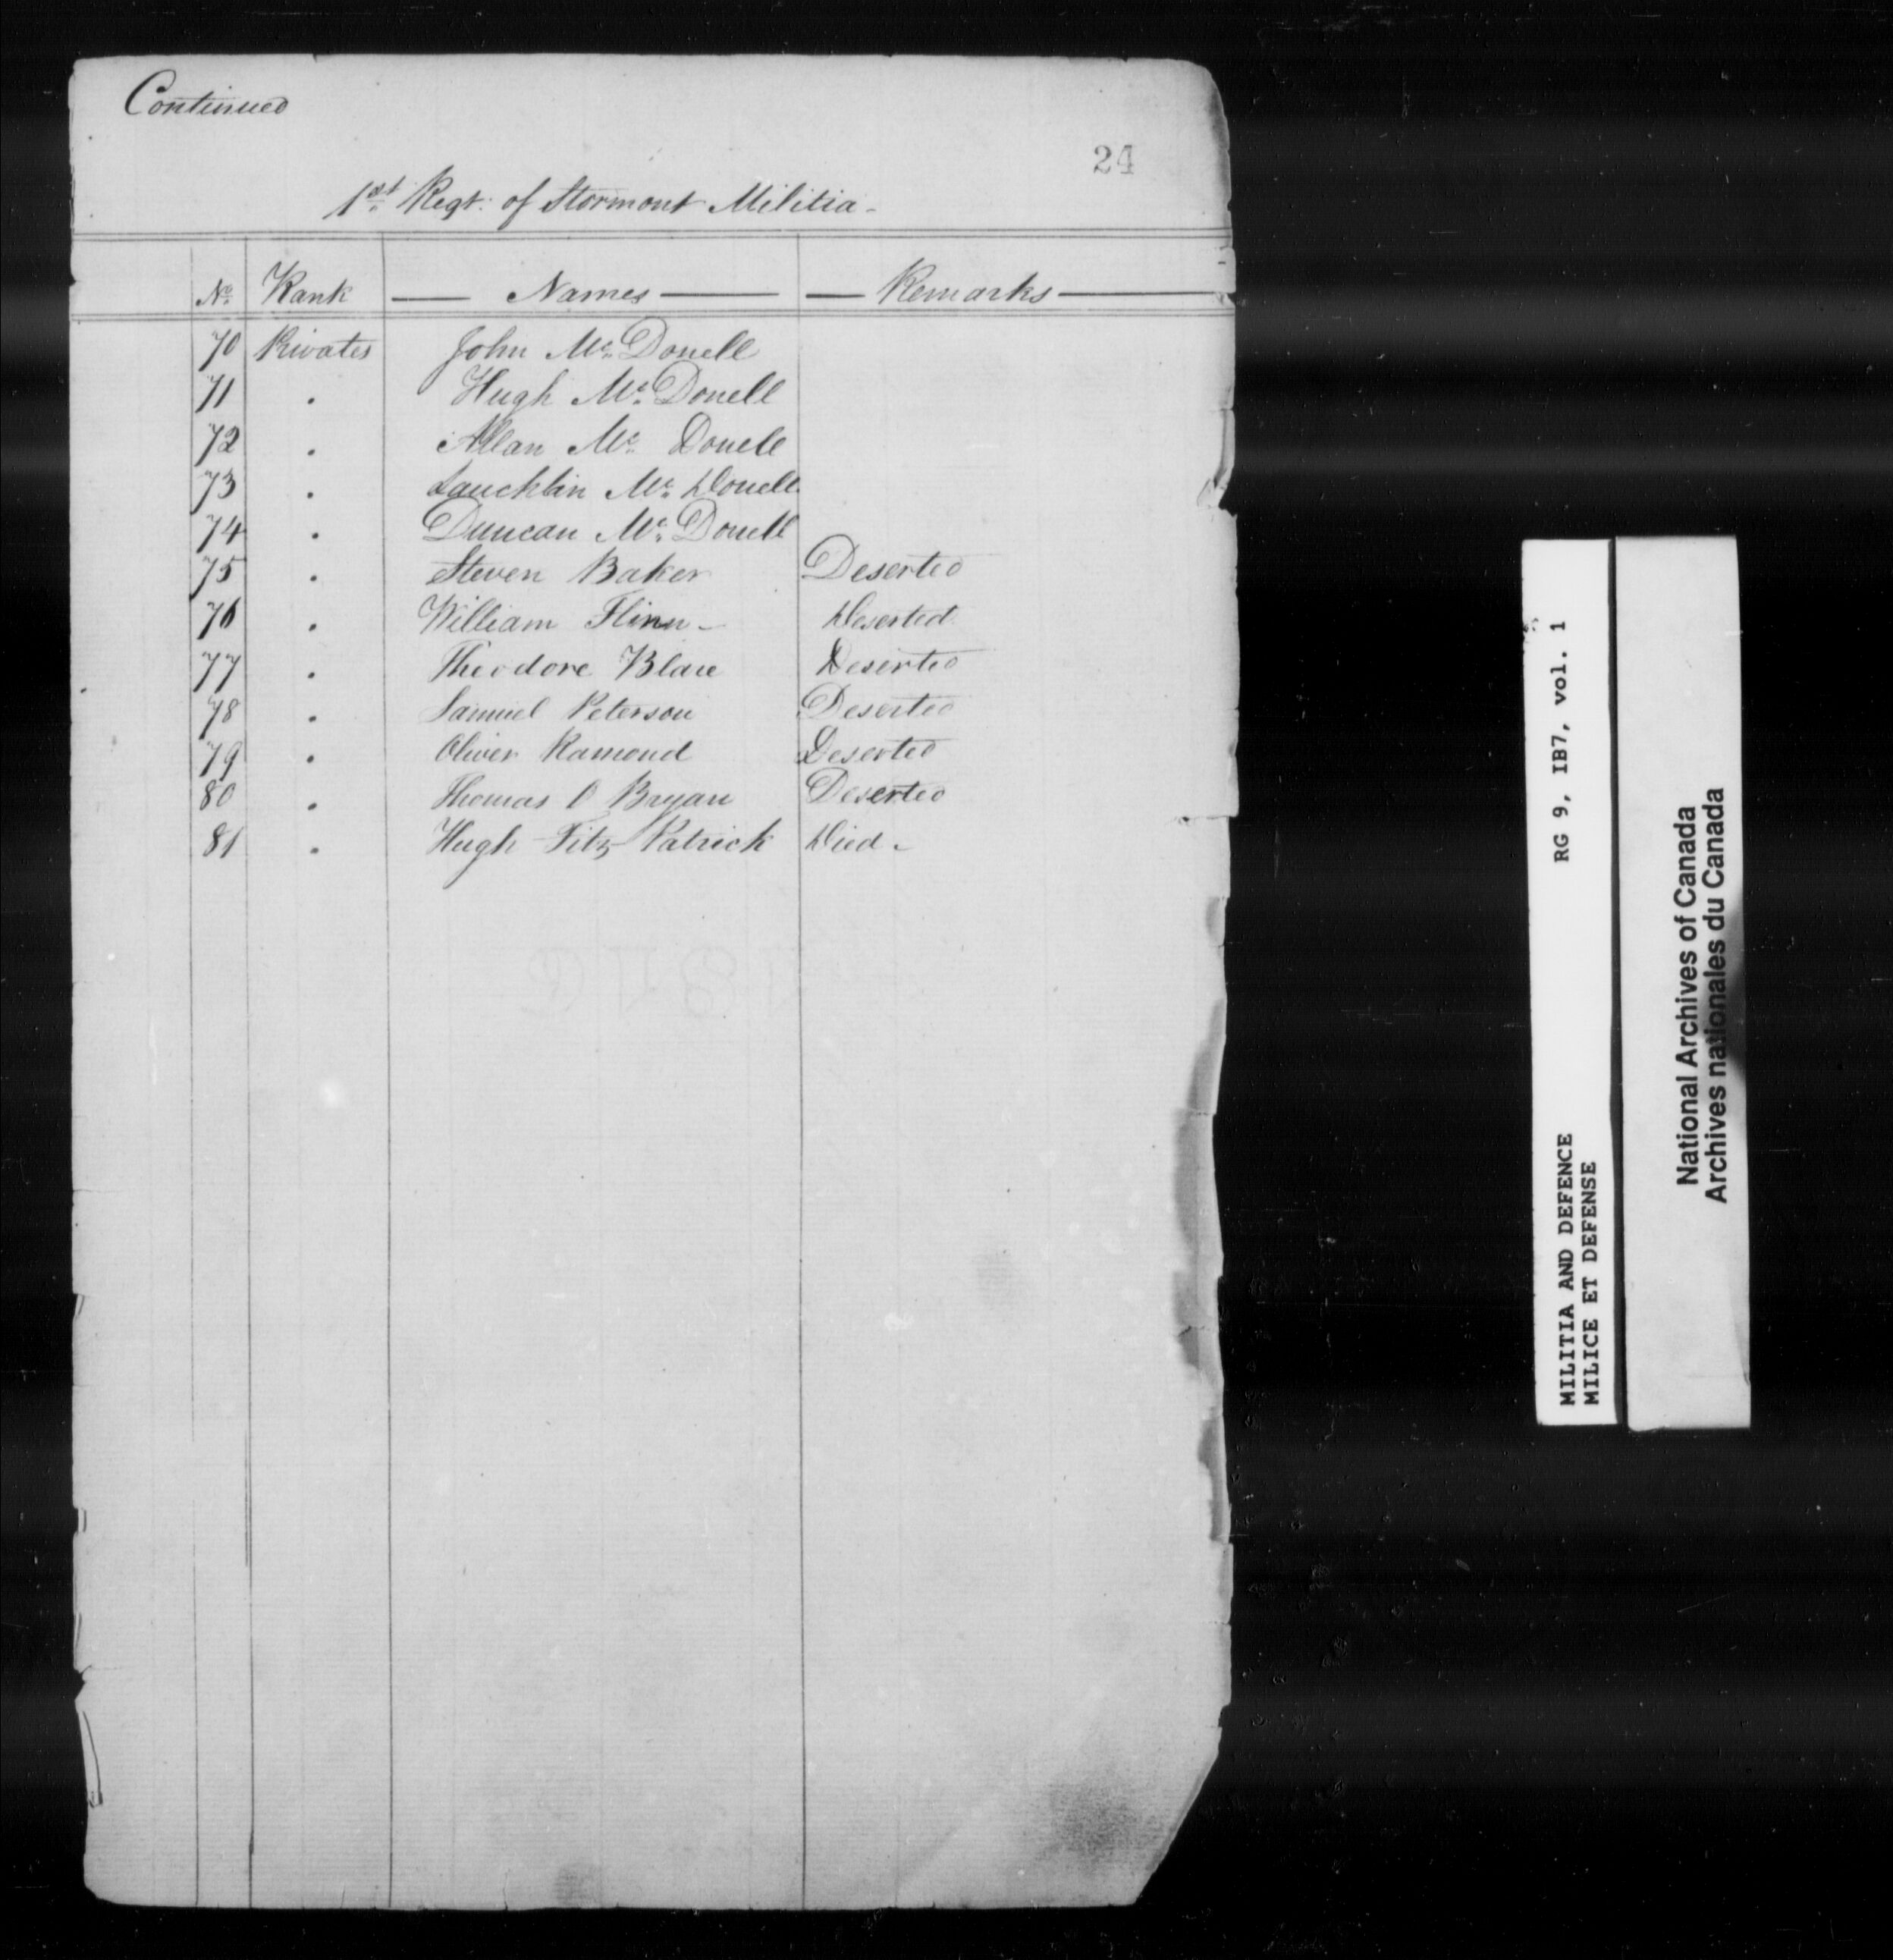 Continued
24
1st Regt. of Stormont Militia -
No. Rank Names Remarks
70 Privates John Mc. Donell
71 . Hugh Mc. Donell
72 . Allan Mc. Donell
73 . Lauchlin Mc. Donell
74 . Duncan Mc. Donell
75 . Steven Baker Deserted
76 . William Flinn - Deserted
77 . Theodore Deserted
78 . Samuel Peterson Deserted
79 . Oliver Ramond Deserted
80 . Thomas O Bryan Deserted
81 . Hugh Fitz Patrick Died -
RG 9, IB7, vol. 1
MILITIA AND DEFENCE
MILICE ET DEFENSE
National Archives of Canada
Archives nationales du Canada